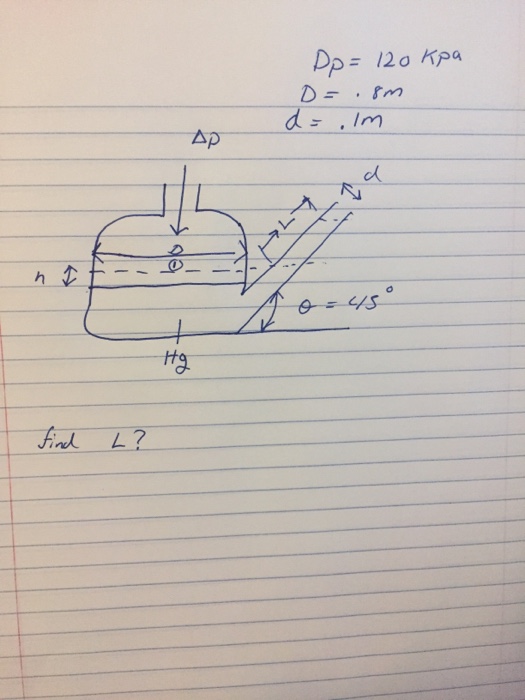 Dp = 120 Kpa
D = .8m
d = .1m
Δp
d
L
D
①
h
θ = 45°
Hg
find L?